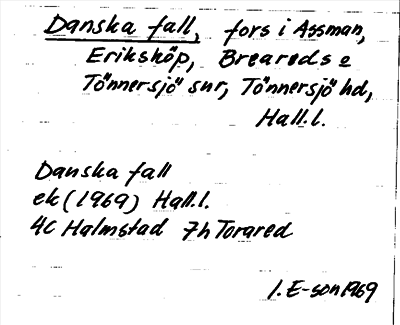 Danska fall, fors i Assman,
Eriksköp, Breareds o
Tönnersjö snr, Tönnersjö hd,
Hall.l.
Danska fall
ek (1969) Hall.l.
4C Halmstad 7h Torared
I. E-son 1969